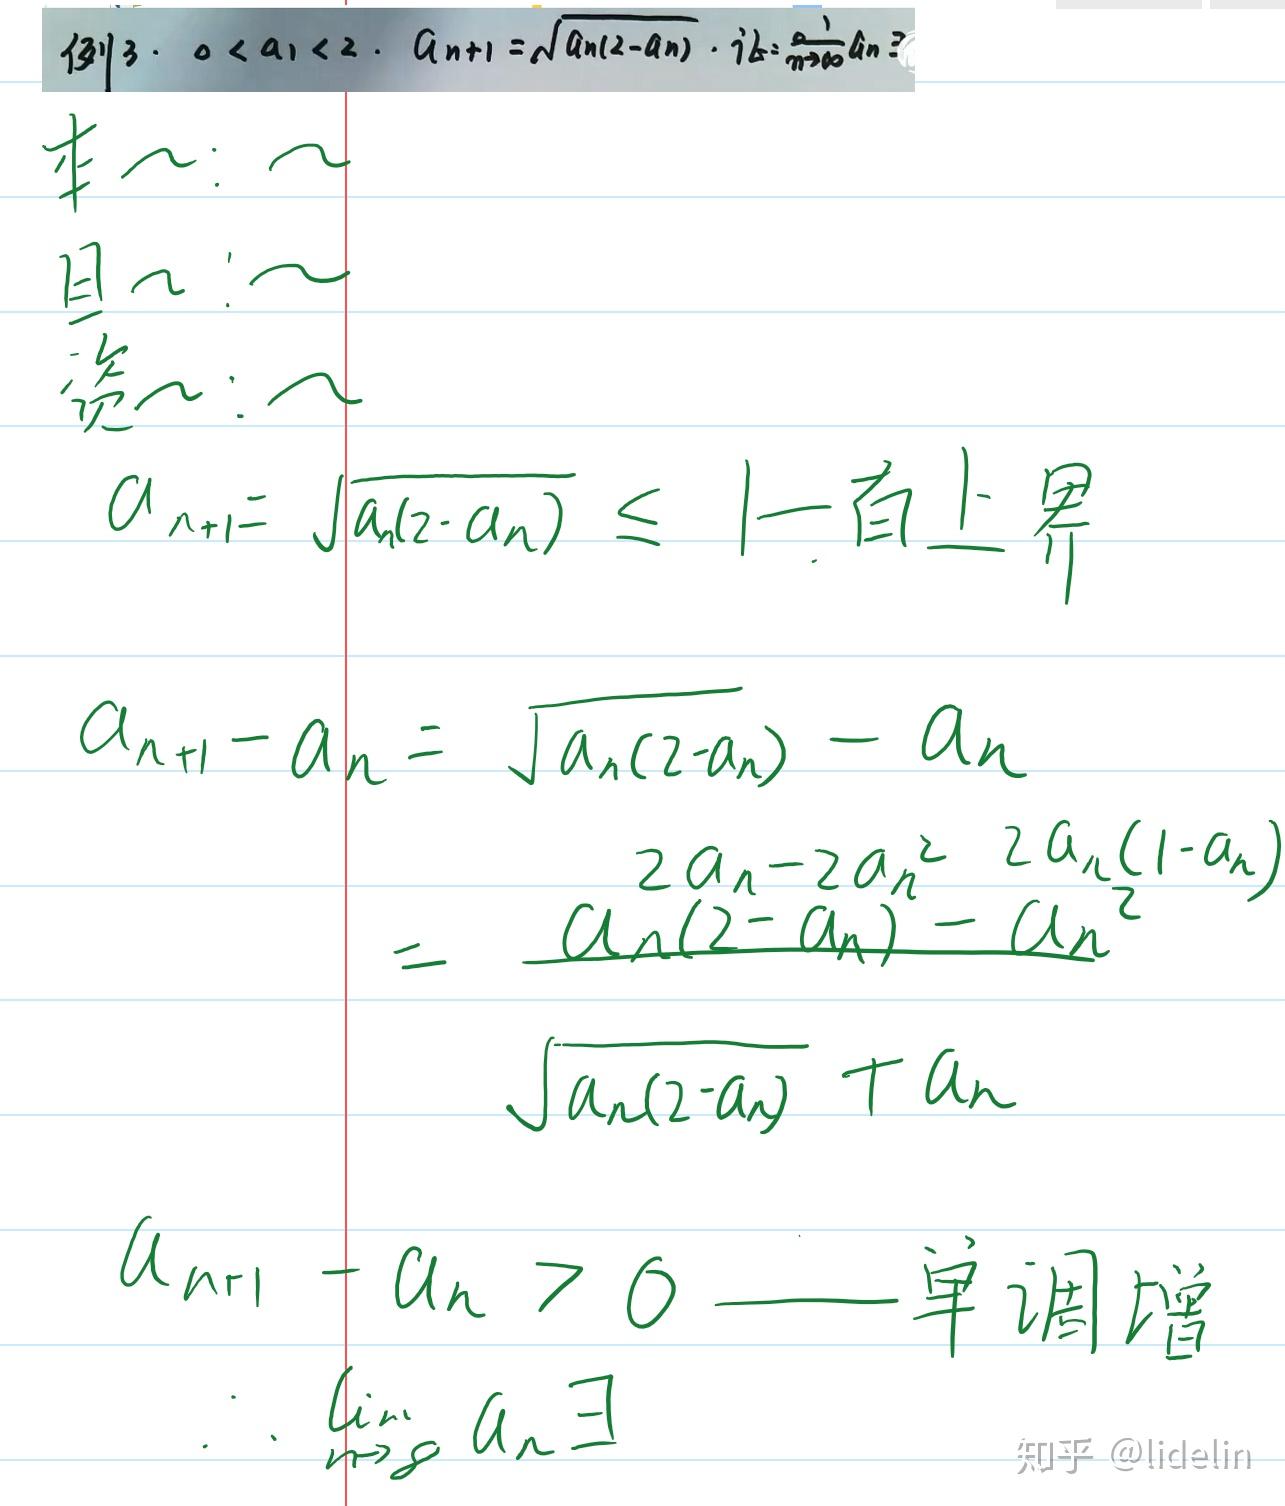 例3. 0<a₁<2. aₙ₊₁=√(aₙ(2-aₙ)). 证: lim n→∞ aₙ∃
本~:~
目~:~
资~:~
aₙ₊₁=√(aₙ(2-aₙ)) ≤ 1—有上界
aₙ₊₁-aₙ=√(aₙ(2-aₙ))-aₙ
2aₙ-2aₙ² 2aₙ(1-aₙ)
= aₙ(2-aₙ)-aₙ²
√(aₙ(2-aₙ))+aₙ
aₙ₊₁-aₙ>0——单调增
∴ lim n→∞ aₙ∃
知乎 @lidelin